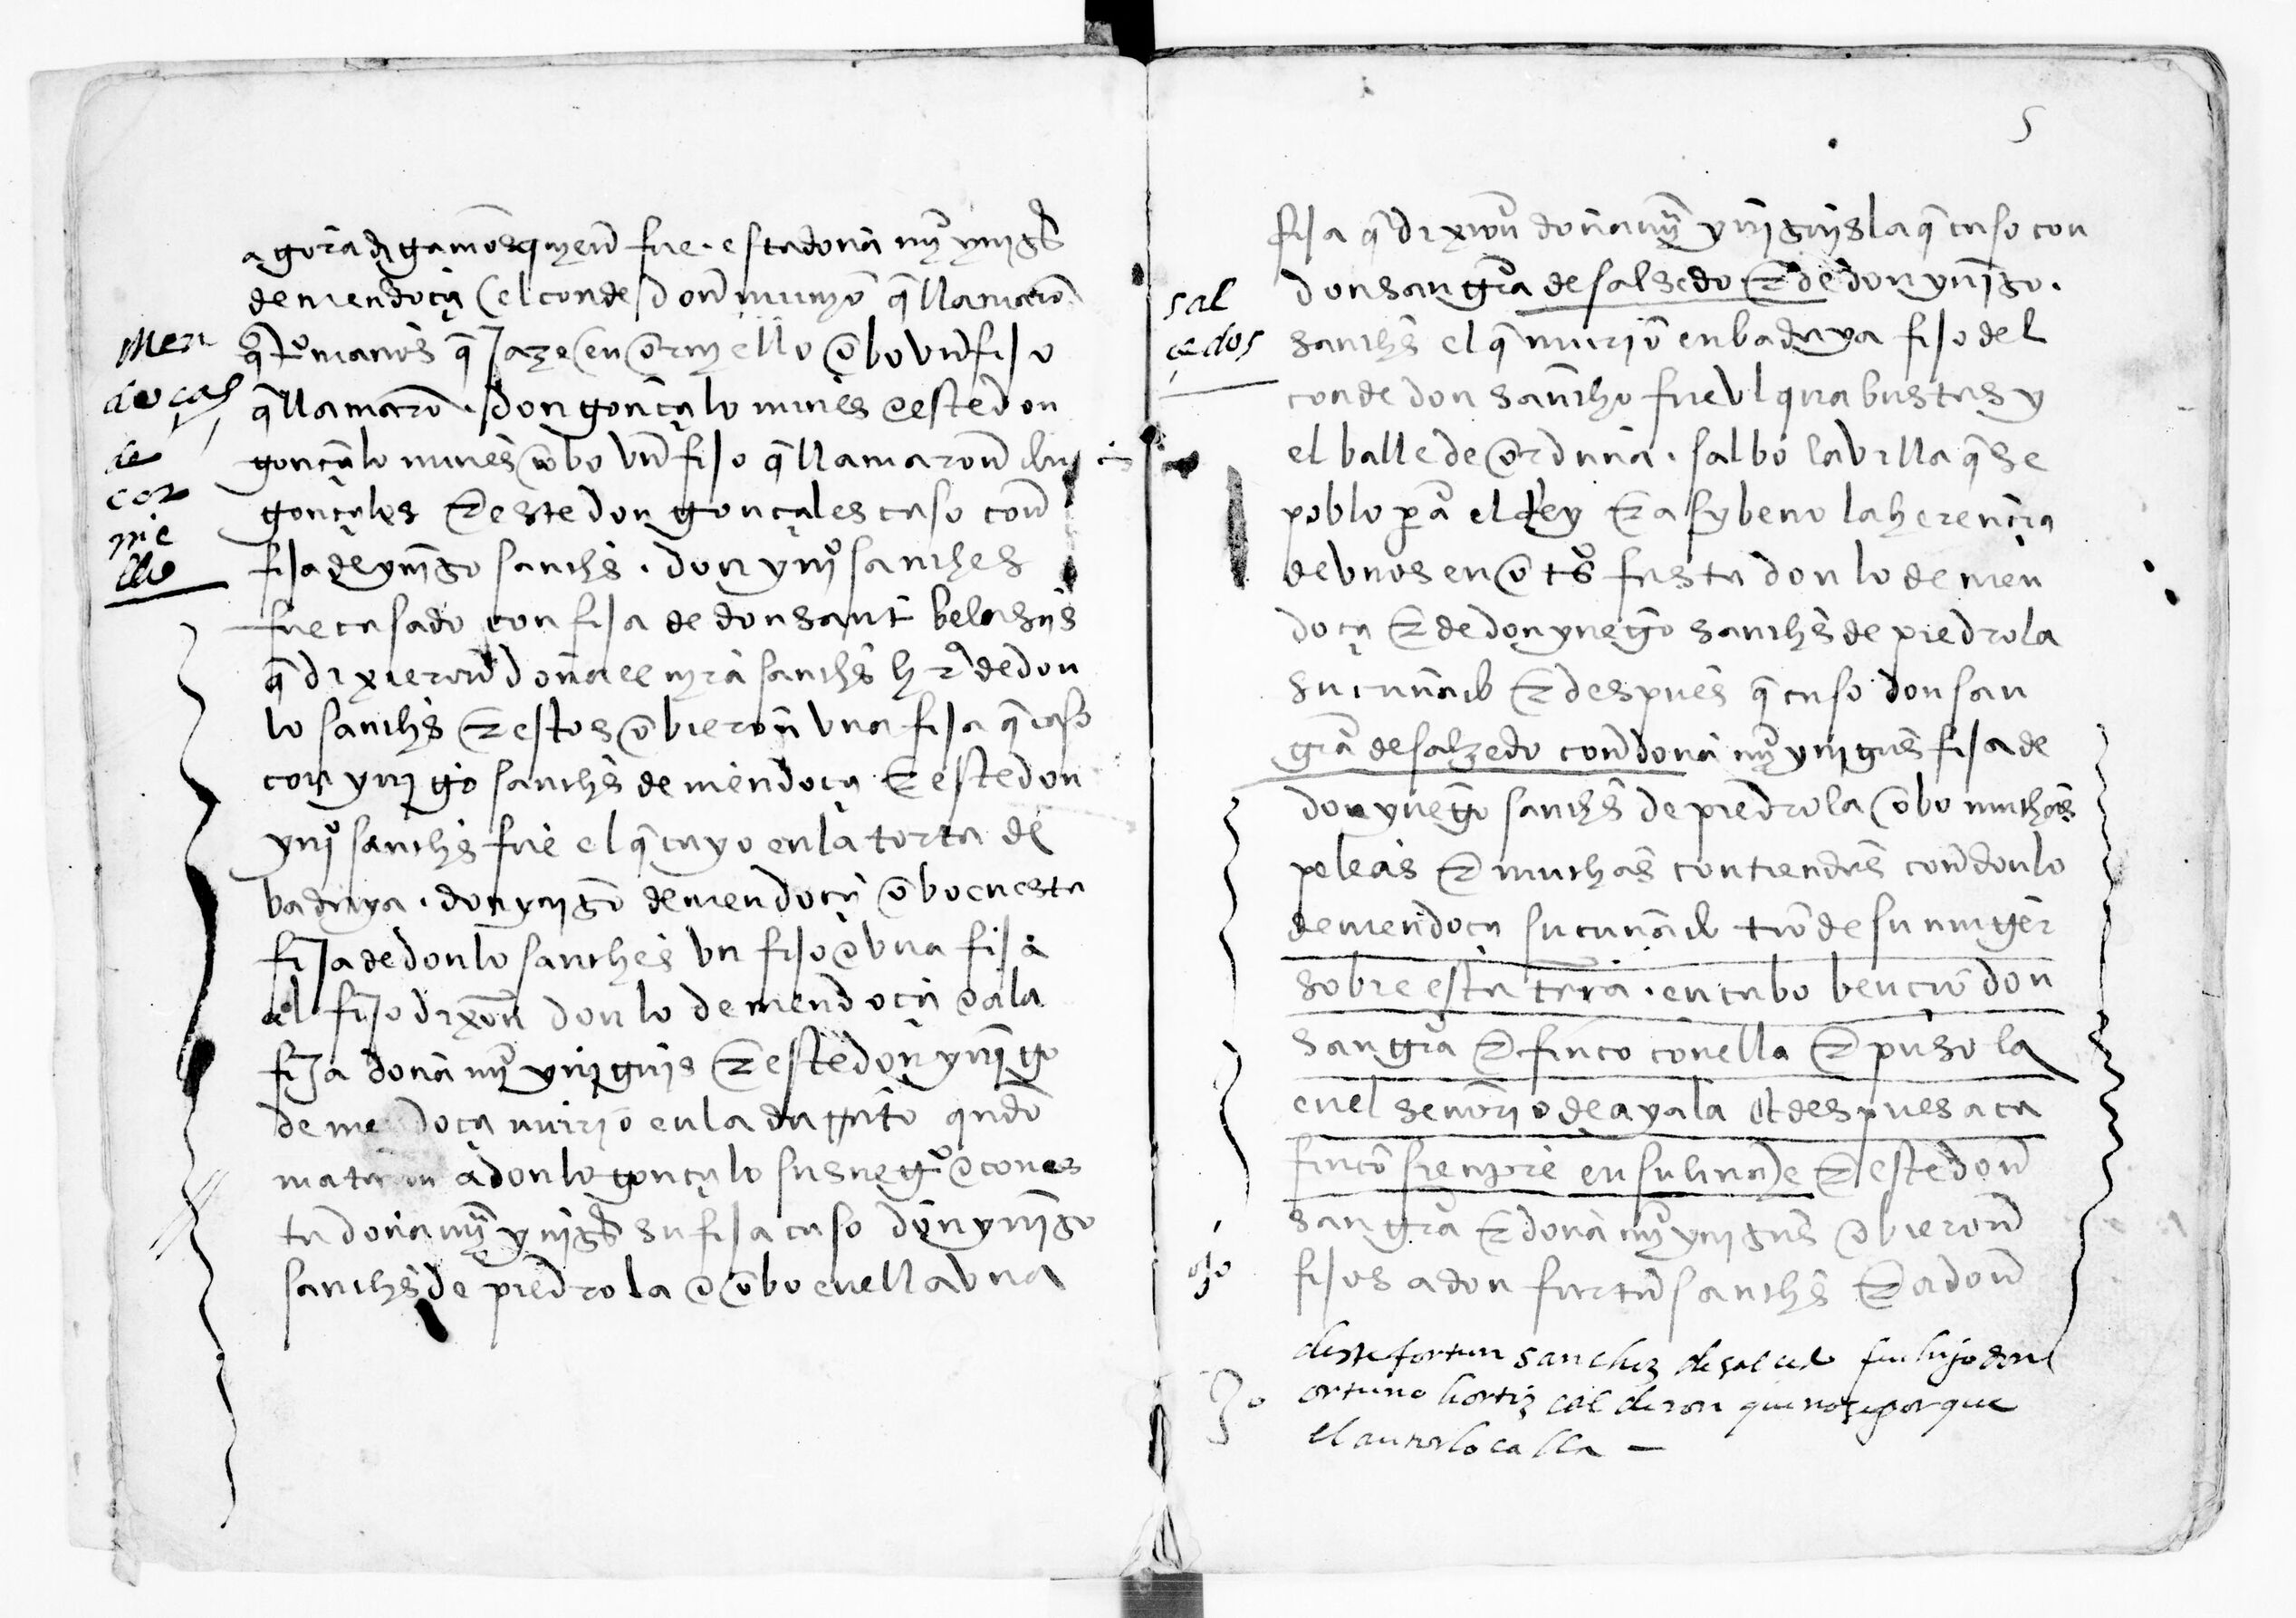 agora digamos quyen fue. esta dona mª ynigˢ
de mendoça el conde don munyo q̃ llamarō
q̃ tºmanos q̃ Jaze en ormyello obo vn fijo
q̃ llamarō. don gonçalo nunes e este don
gonçalo nunes obo vn fijo q̃ llamaron
gonçales E este don gonçales caso con
fija de ynigo sanchs. don ynjº sanches
fue casado con fija de don sant belasqs
q̃ dixieron dona elvyra sanchs hrª de don
lo sanchs E estos obieron vna fija q̃ caso
con ynigo sanchs de mendoça E este don
ynjº sanchs fue el q̃ cayo en la torca de
badaya. don ynigo de mendoça obo en esta
fija de don lo sanches vn fijo e vna fija
al fijo dixerō don lo de mendoça e a la
fija dona mª yniguis E este don ynigo
de mendoça murio en la do qndo
mataron a don lo gonçalo su suegº e con es
ta dona mª ynigˢ su fija caso don ynigo
sanchs de piedrola e obo en ella vna
Men
doças
de
cor
nie
llo
5
fija q̃ dixerō dona mª yniguis la q̃ caso con
don san grª de salsedo E de don ynigo.
sanchs el q̃ murio en badaya fijo del
conde don sancho fue vlquia bustas y
el balle de orduna. salbo la villa q̃ se
poblo pª el Rey E asy beno la herencia
de vnos en otºs fasta don lo de men
doça E de don ynego sanchs de piedrola
su cunado E despues q̃ caso don san
grª de salzedo con dona mª ynigues fija de
don ynego sanchs de piedrola obo muchas
peleas E muchas contiendas con don lo
de mendoça su cunado tio de su muger
sobre esta trrª. en cabo bencio don
san grª E finco con ella E puso la
en el senorio de ayala Et despues aca
finco siempre en su linaje E este don
san grª E dona mª ynigues obieron
fijos a don furtun sanchs E a don
sal
cedos
ojo
deste fortun sanchez de salcedo fue hijo don
ortuno hortiz calderon que no se por que
el autor lo calla —